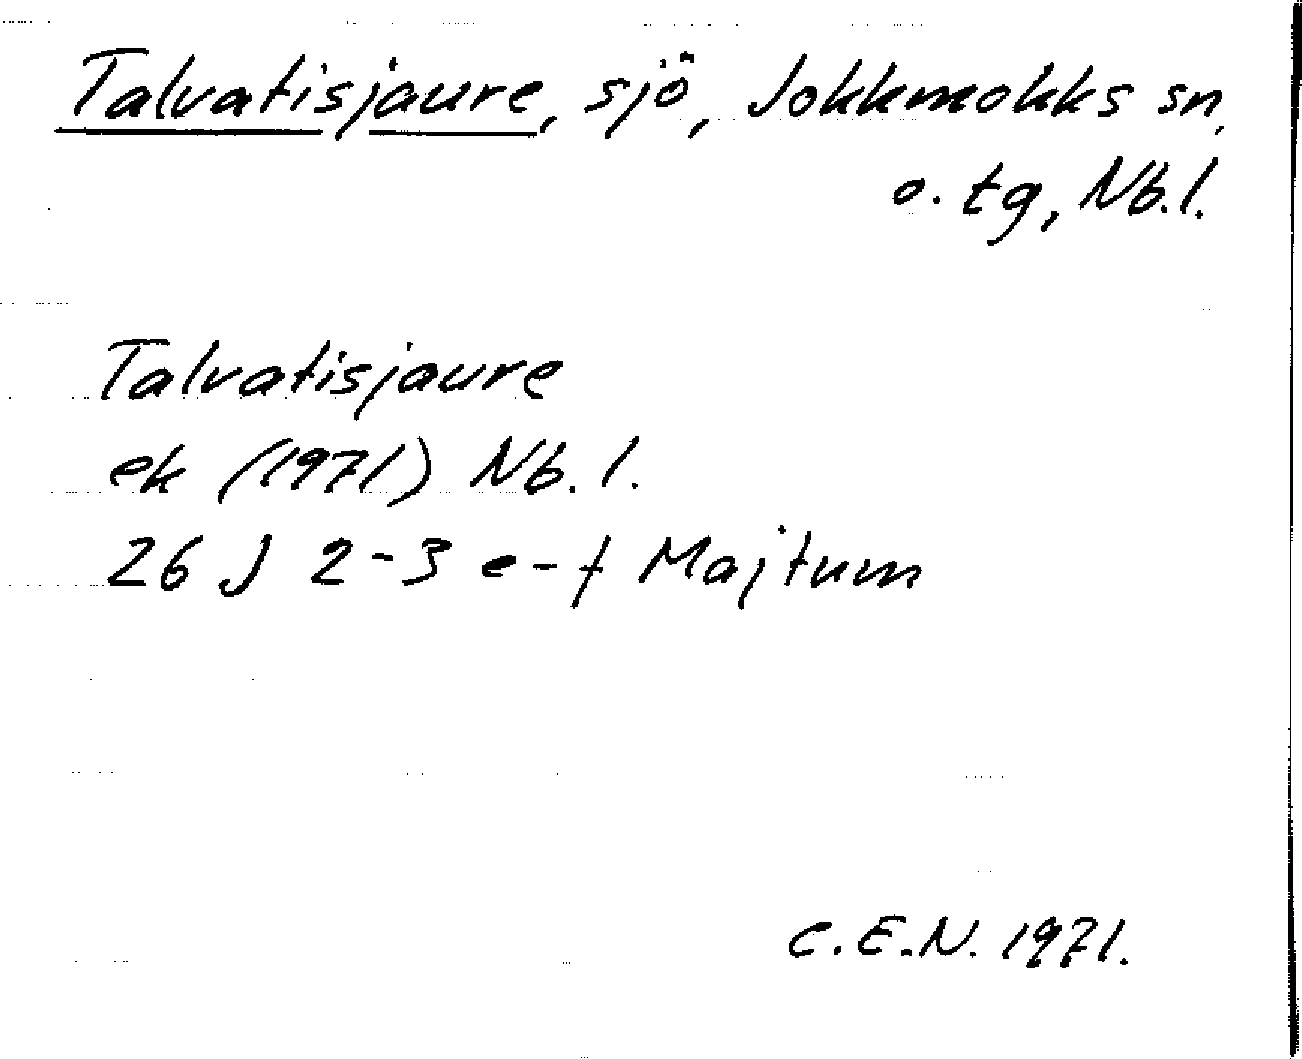 Talvatisjaure, sjö, Jokkmokks sn,
o. tg, Nb.l.
Talvatisjaure
ek (1971) Nb. l.
26 J 2-3 e-f Majtum
C.E.N. 1971.